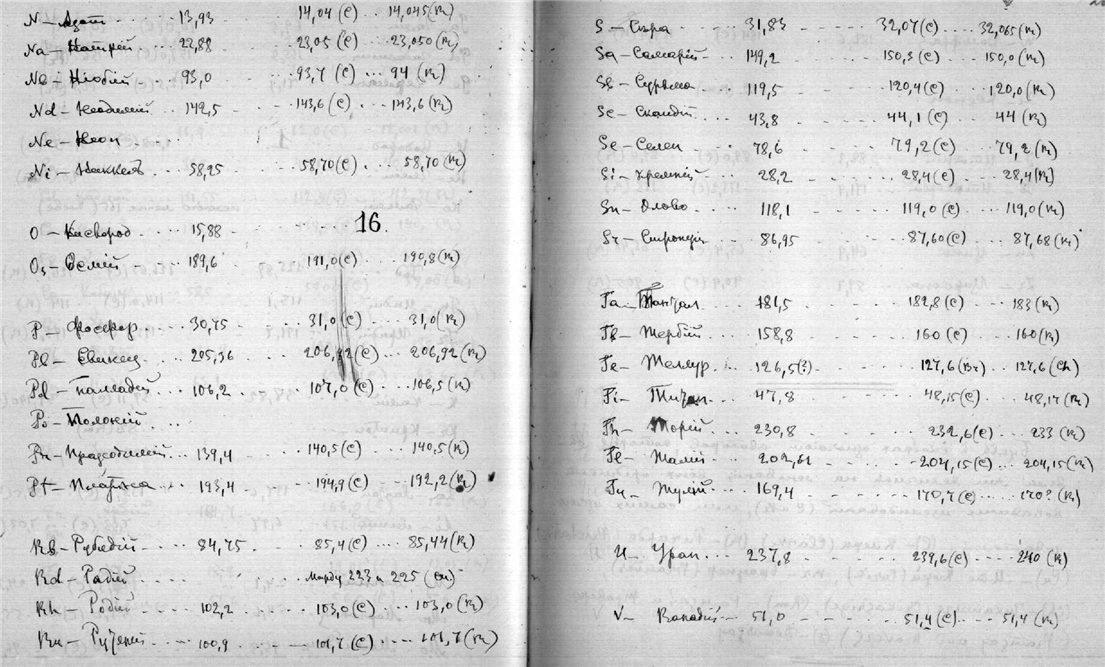 N – Азот 13,93 14,04 (С) 14,045 (R)
Na – Натрий 22,88 23,05 (С) 23,050 (R)
Nb – Ніобій 93,0 93,7 (С) 94 (R)
Nd – Неодимій 142,5 143,6 (С) 143,6 (R)
Ne – Неон
Ni – Никкель 58,25 58,70 (С) 58,70 (R)
O – Кислород 15,88 16.
Os – Осмій 189,6 191,0 (С) 190,8 (R)
P – Фосфор 30,75 31,0 (С) 31,0 (R)
Pb – Свинец 205,36 (С) 206,92 (R)
Pd – Палладій 106,2 107,0 (С) 106,5 (R)
Po – Полоній
Pr – Празеодимій 139,4 140,5 (С) 140,5 (R)
Pt – Платина 193,4 194,9 (С) 192,2 (R)
Rb – Рубидій 84,75 85,4 (С) 85,44 (R)
Rd – Радій между 233 и 225
Rh – Родій 102,2 103,0 (С) 103,0 (R)
Ru – Рутеній 100,9 101,7 (С) 101,7 (R)
S – Сѣра 31,83 32,07 (С) 32,065 (R)
Sa – Самарій 149,2 150,3 (С) 150,0 (R)
Sb – Сурьма 119,5 120,4 (С) 120,0 (R)
Sc – Скандій 43,8 44,1 (С) 44 (R)
Se – Селен 78,6 79,2 (С) 79,2 (R)
Si – Кремній 28,2 28,4 (С) 28,4 (R)
Sn – Олово 118,1 119,0 (С) 119,0 (R)
Sr – Стронцій 86,95 87,60 (С) 87,68 (R)
Ta – Тантал 181,5 182,8 (С) 183 (R)
Tb – Тербій 158,8 160 (С) 160 (R)
Te – Теллур 126,5 (?) 127,6 127,6 (Ch)
Ti – Титан 47,8 48,15 (С) 48,17 (R)
Th – Торій 230,8 232,6 (С) 233 (R)
Tl – Талій 202,61 204,15 (С) 204,15 (R)
Tu – Тулій 169,4 170,7 (С) 170? (R)
U – Уран 237,8 239,6 (С) 240 (R)
V – Ванадій 51,0 51,4 (С) 51,4 (R)